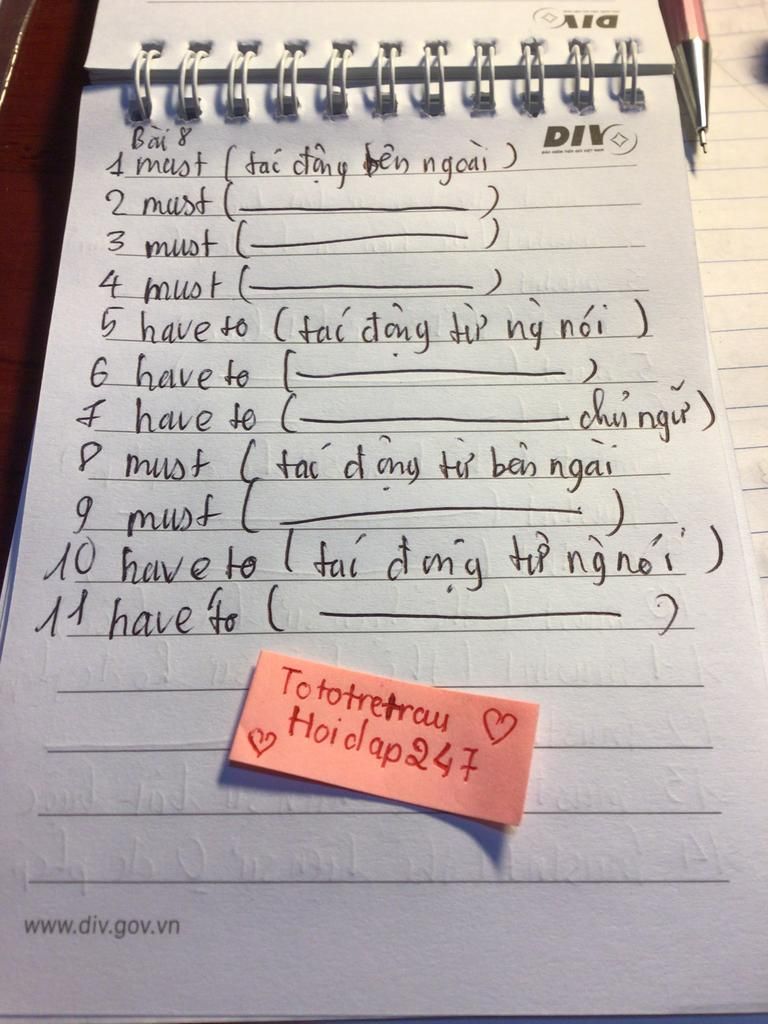 DIV
DIV
Bài 8
1 must (tác động bên ngoài)
2 must ( )
3 must ( )
4 must ( )
5 have to (tác động từ ng nói)
6 have to ( )
7 have to ( chủ ngữ)
8 must (tác động từ bên ngài
9 must ( )
10 have to (tác động từ ng nói)
11 have to ( )
Tototretrau
Hoidap247
www.div.gov.vn